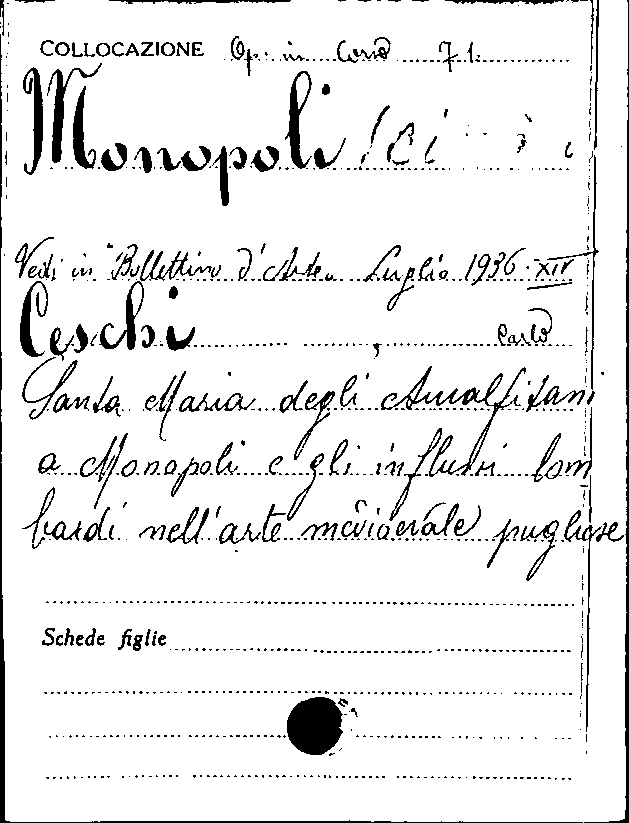 COLLOCAZIONE Op. in Corso 71.
Monopoli
Vedi in "Bollettino d'Arte" Luglio 1936 - XIV
Ceschi, Carlo
Santa Maria degli Amalfitani
a Monopoli e gli influssi lom
bardi nell'arte medioevale pugliese
Schede figlie